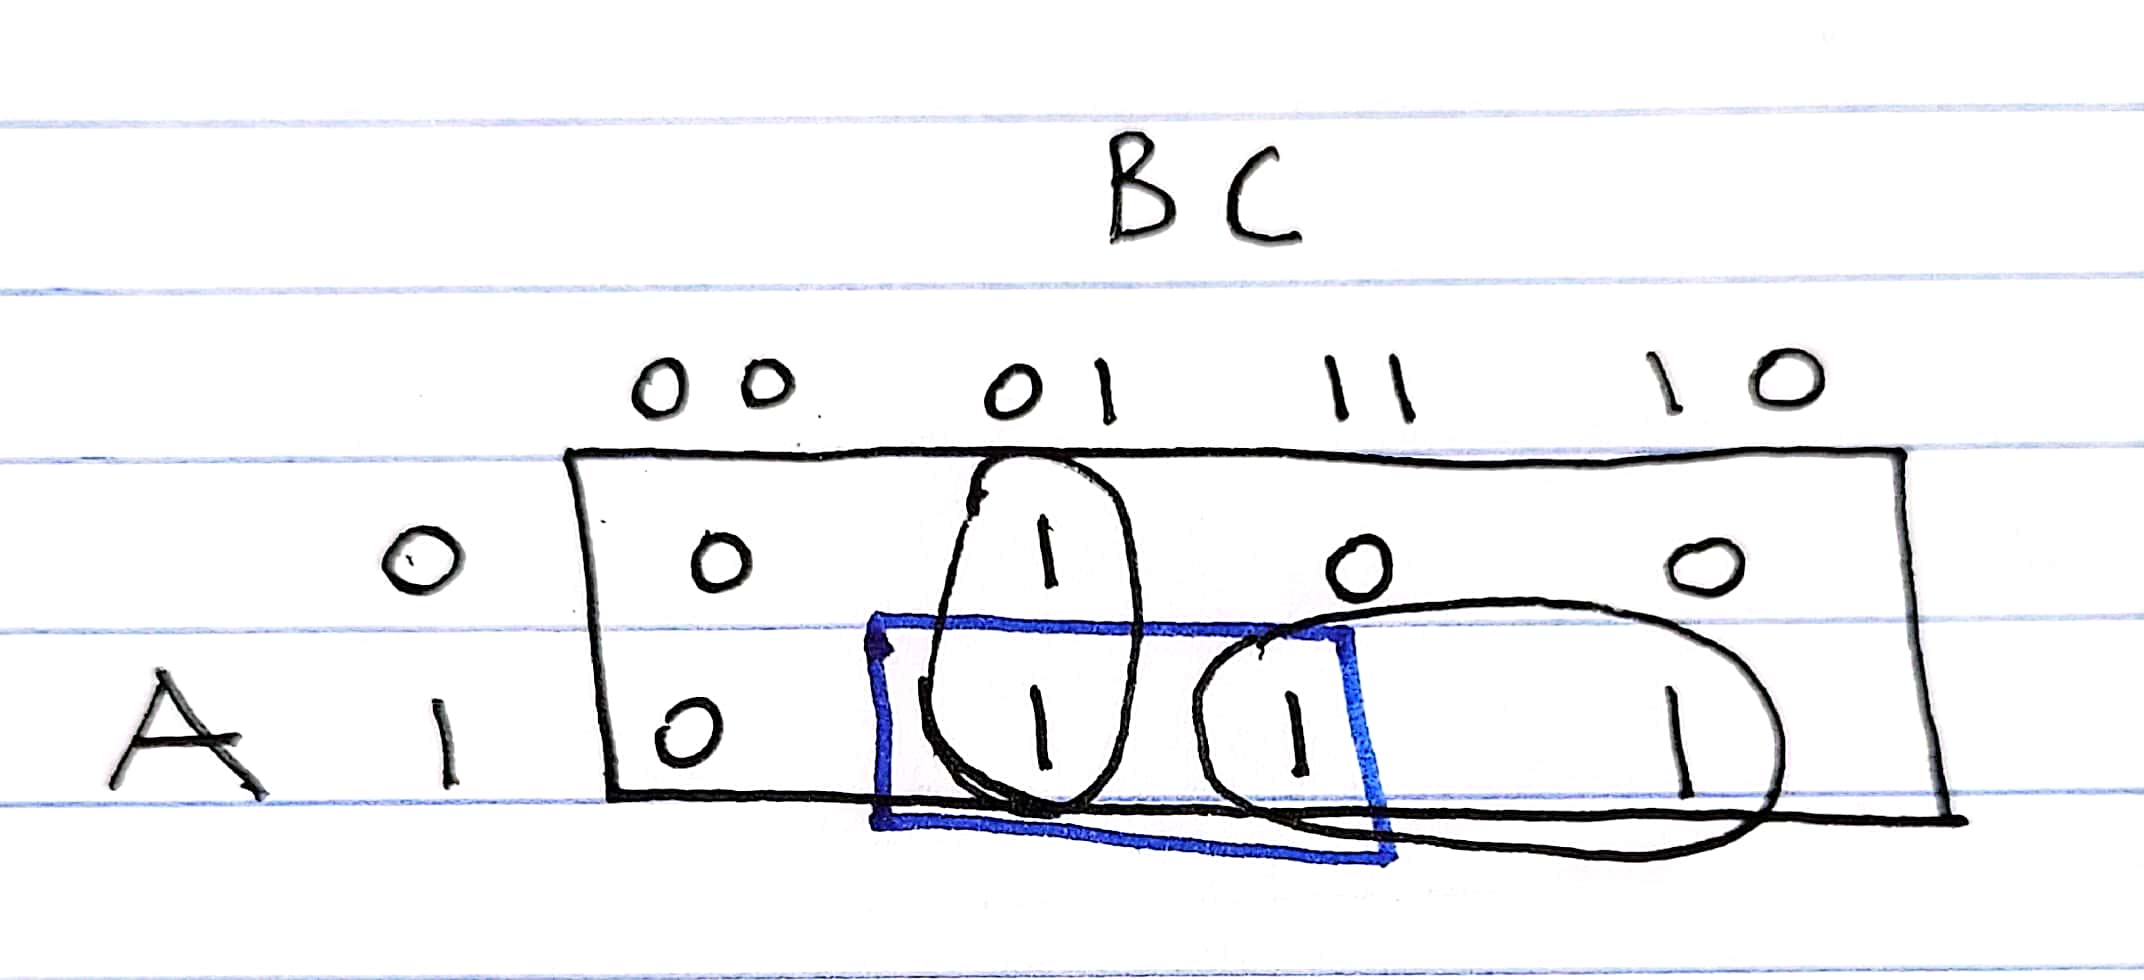 BC
00 01 11 10
0 0 1 0 0
A 1 0 1 1 1